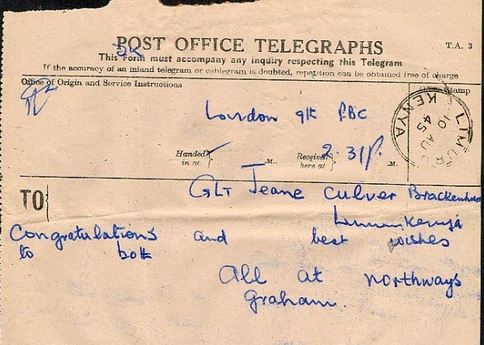 POST OFFICE TELEGRAPHS
T.A. 3
This Form must accompany any inquiry respecting this Telegram
If the accuracy of an inland telegram or cablegram is doubted, repetition can be obtained free of charge
Office of Origin and Service Instructions
Stamp
London 9th PBC
LIMURU
10 AU
45
KENYA
Handed in at M.
Received here at 2.31P. M.
TO
GLT Jeane Culver Brackenhurst
Kenya
Congratulations and best wishes
to both
All at northways
graham.